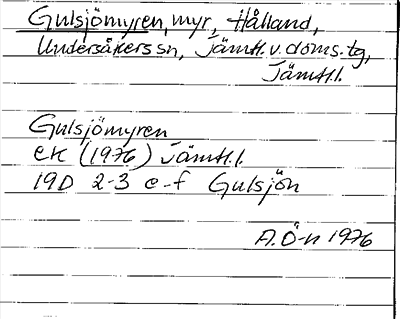 Gulsjömyren, myr, Hålland,
Undersåkers sn, Jämtl. v. doms. tg,
Jämtl. l.
Gulsjömyren
ek (1976) Jämtl. l.
19D 2-3 e-f Gulsjön
A. Ö-n 1976